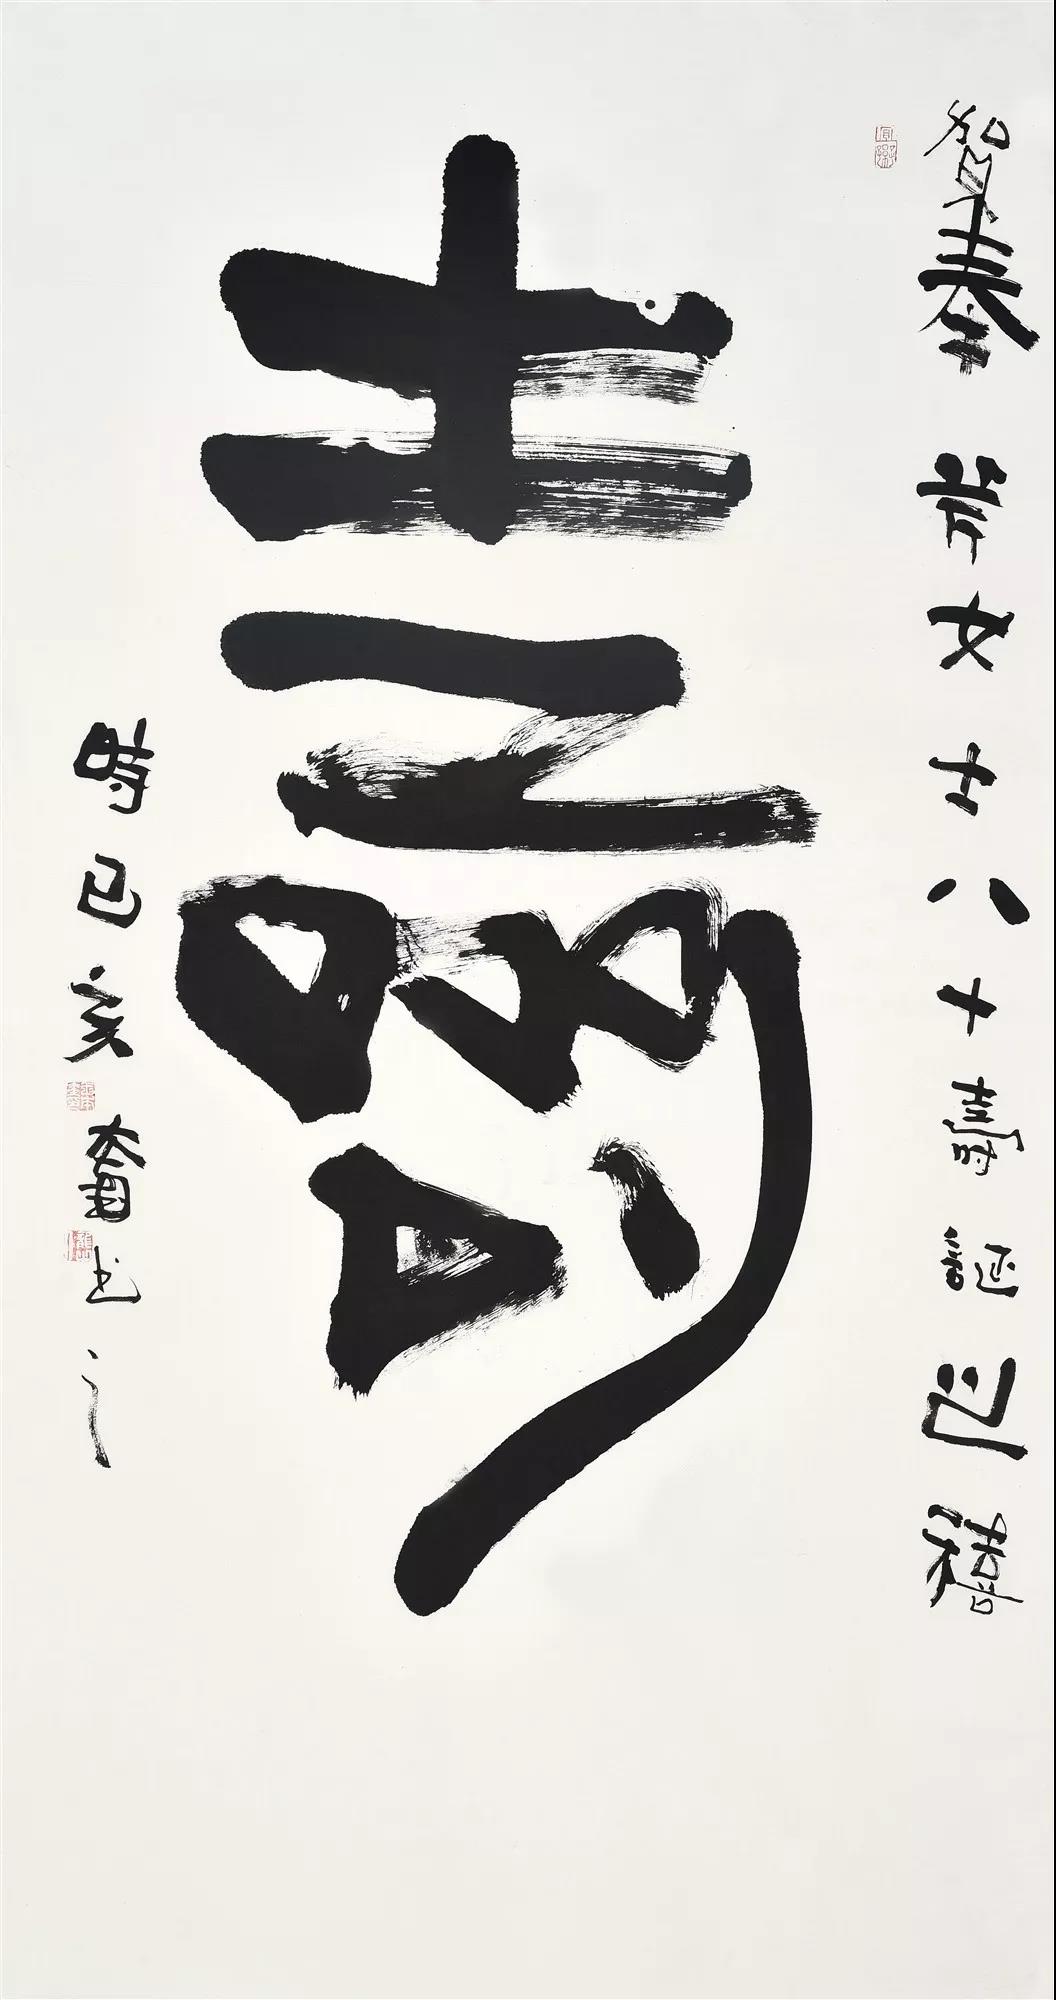 賀奉芹女士八十壽誕之禧
壽
時己亥奮書之